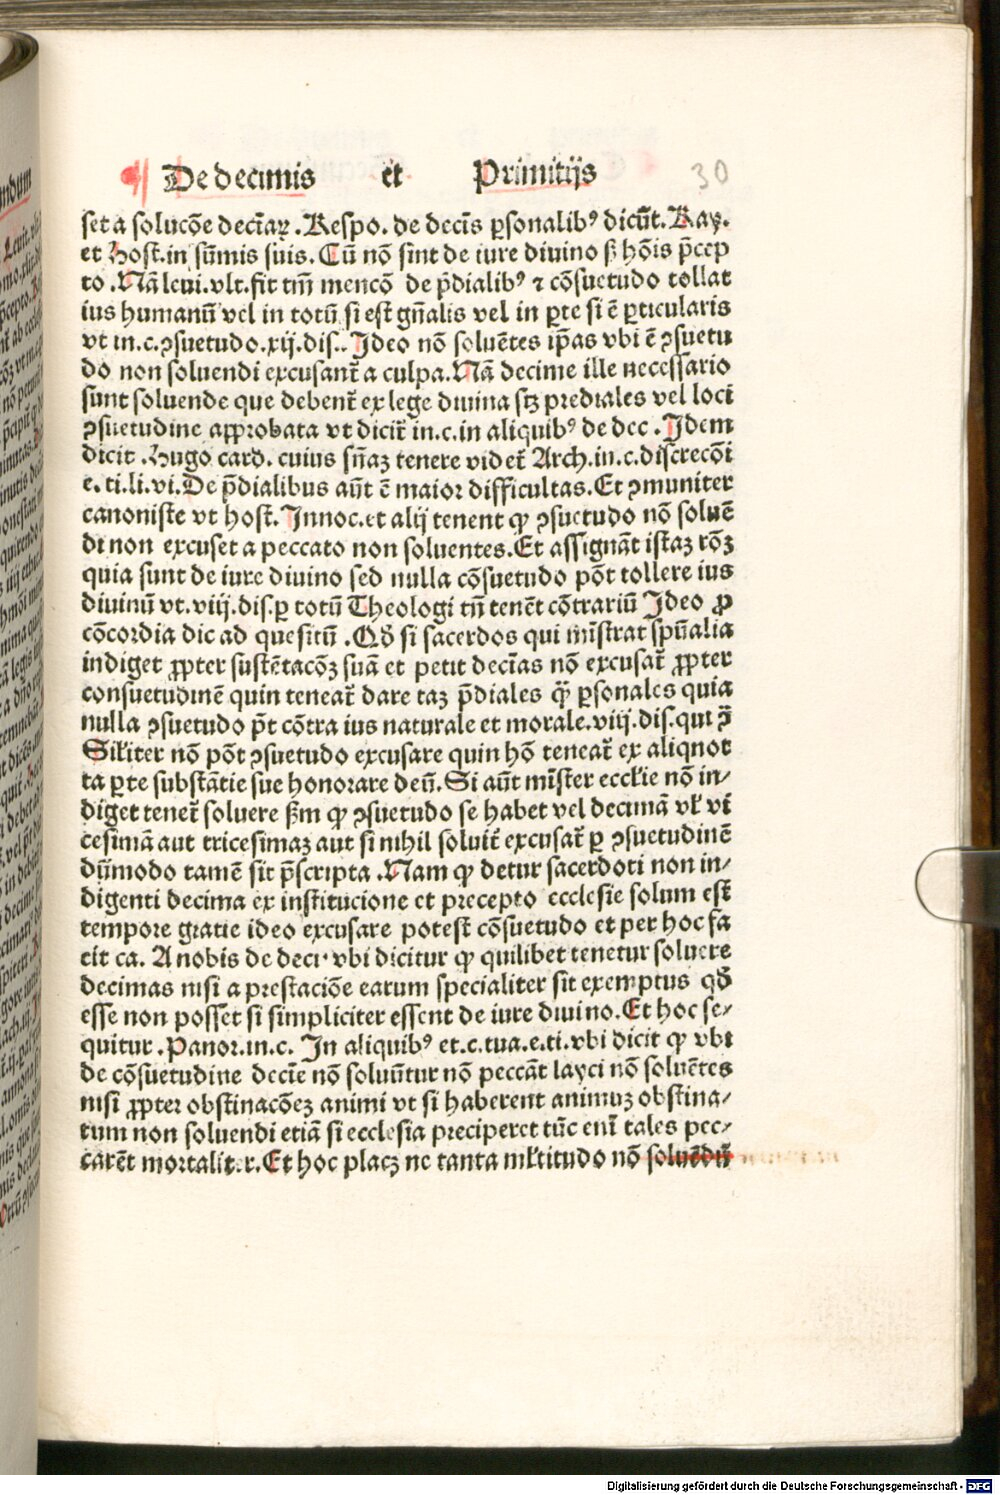 De decimis et Primitijs 30
set a solucōe decīaꝝ . Respo. de decīs ꝑsonalibꝰ dicūt. Ray.
et Host. in sūmis suis. Cū nō sint de iure divino sꝫ hōis p̄cep
to . Nā leui. vlt. fit tm̄ mencō de p̄dialibꝰ ⁊ cōsuetudo tollat
ius humanū vel in totū si est gn̄alis vel in ꝑte si ē ꝑticularis
vt in. c. ꝯsuetudo. xij. dis.. Ideo nō soluētes ip̄as vbi ē ꝯsuetu
do non soluendi excusant̄ a culpa. Nā decime ille necessario
sunt soluende que debent̄ ex lege diuina stꝫ prediales vel loci
ꝯsuetudine approbata vt dicit̄ in. c. in aliquibꝰ de dec . Idem
dicit . Hugo card. cuius sn̄aꝫ tenere videt̄ Arch. in. c. discrecōi
e. ti. li. vi. De p̄dialibus aūt ē maior difficultas. Et ꝯmuniter
canoniste vt host. Innoc. et alij tenent ꝙ ꝯsuetudo nō soluē
di non excuset a peccato non soluentes. Et assignāt istaꝫ rōꝫ
quia sunt de iure diuino sed nulla cōsuetudo pōt tollere ius
diuinū vt. viij. dis. ꝑ totū Theologi tn̄ tenēt cōtrariū Ideo ꝓ
cōcordia dic ad quesitū . Qđ si sacerdos qui mīstrat spūalia
indiget ꝓpter sustētacōꝫ suā et petit decīas nō excusat̄ ꝓpter
consuetudinē quin teneat̄ dare taꝫ p̄diales q̄ꝫ ꝑsonales quia
nulla ꝯsuetudo p̄t cōtra ius naturale et morale. viij. dis. qui ꝯ̄
Silīter nō pōt ꝯsuetudo excusare quin hō teneat̄ ex aliqnot
ta ꝑte substātie sue honorare deū. Si aūt mīster eccłie nō in⸗
diget tenet̄ soluere ẜm ꝙ ꝯsuetudo se habet vel decimā vł vi
cesimā aut tricesimaꝫ aut si nihil soluit̄ excusat̄ ꝑ ꝯsuetudinē
dūmodo tamē sit p̄scripta . Nam ꝙ detur sacerdoti non in⸗
digenti decima ex institucione et precepto ecclesie solum est
tempore gratie ideo excusare potest cōsuetudo et per hoc fa
cit ca. A nobis de deci. vbi dicitur ꝙ quilibet tenetur soluere
decimas nisi a prestaciōe earum specialiter sit exemptus qđ
esse non posset si simpliciter essent de iure diuino. Et hoc se⸗
quitur . Panor. in. c. In aliquibꝰ et. c. tua. e. ti. vbi dicit ꝙ vbi
de cōsuetudine decīe nō soluūtur nō peccāt layci nō soluētes
nisi ꝓpter obstinacōeꝫ animi vt si haberent animuꝫ obstina⸗
tum non soluendi etiā si ecclesia preciperet tūc enī tales pec⸗
carēt mortaliter. Et hoc placꝫ ne tanta młtitudo nō soluēdū
Digitalisierung gefördert durch die Deutsche Forschungsgemeinschaft - DFG